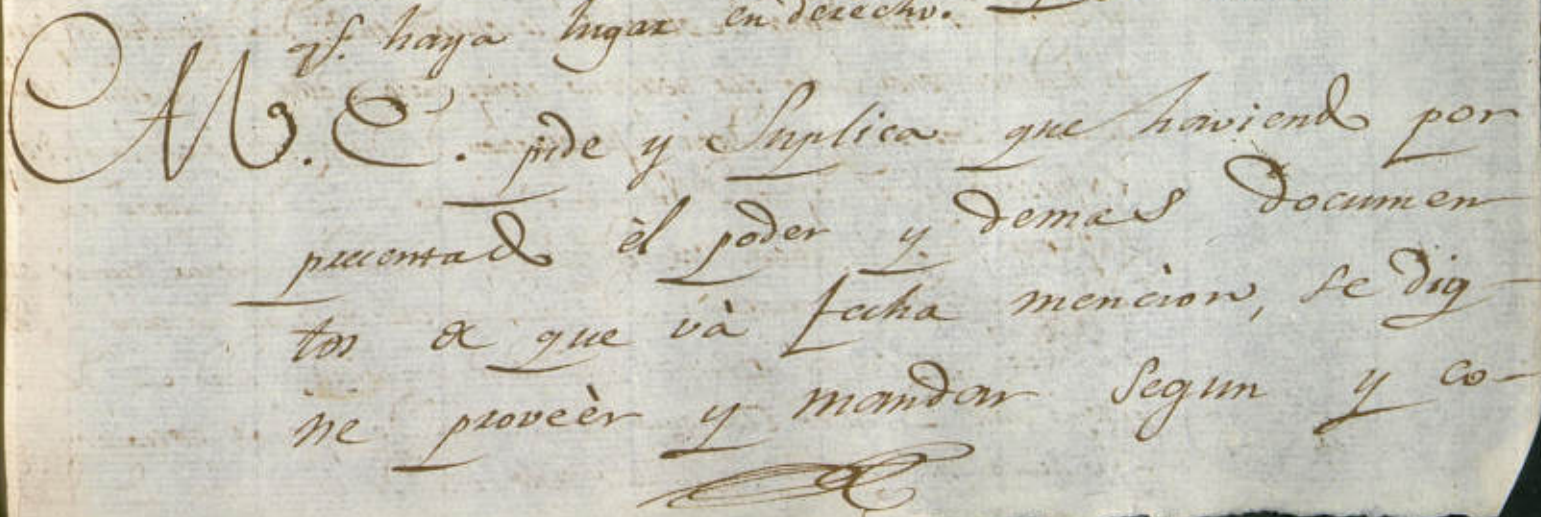 qe. haya lugar en derecho.
A V. E. pide y Suplica que haviendo por
presentado èl poder y demas documen
tos de que và fecha mencion, se dig-
ne proveèr y mandar Segun y co-